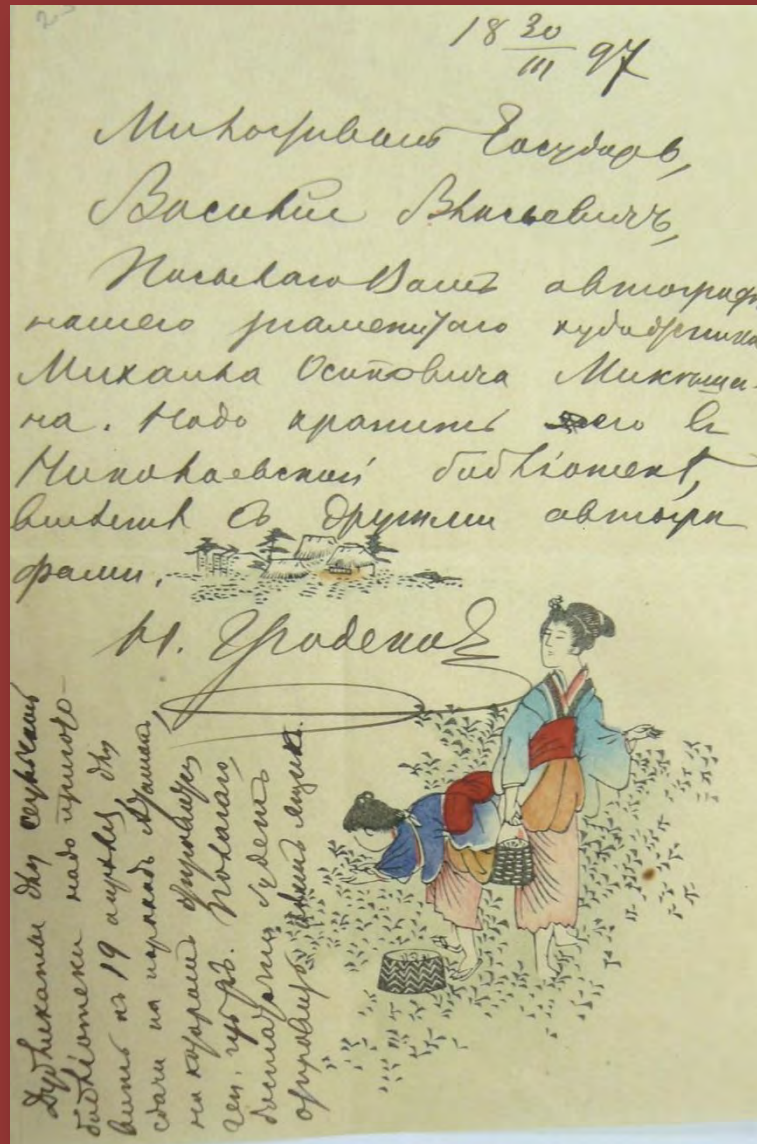 18 30/III 97
Милостивый Государь,
Василий Васильевичъ,
Посылаю Вамъ автографъ
нашего знаменитаго художника
Михаила Осиповича Микѣши-
на. Надо хранить его въ
Николаевской библіотекѣ,
вмѣстѣ съ другими автогра
фами.
Н. Гродековъ
Дубликаты для
библіотеки надо пригото-
вить къ 19 апрѣля для
сдачи на пароходъ
на которомъ отправляется
ген. губ. Полагаю
достаточно будетъ
отправить ящика.